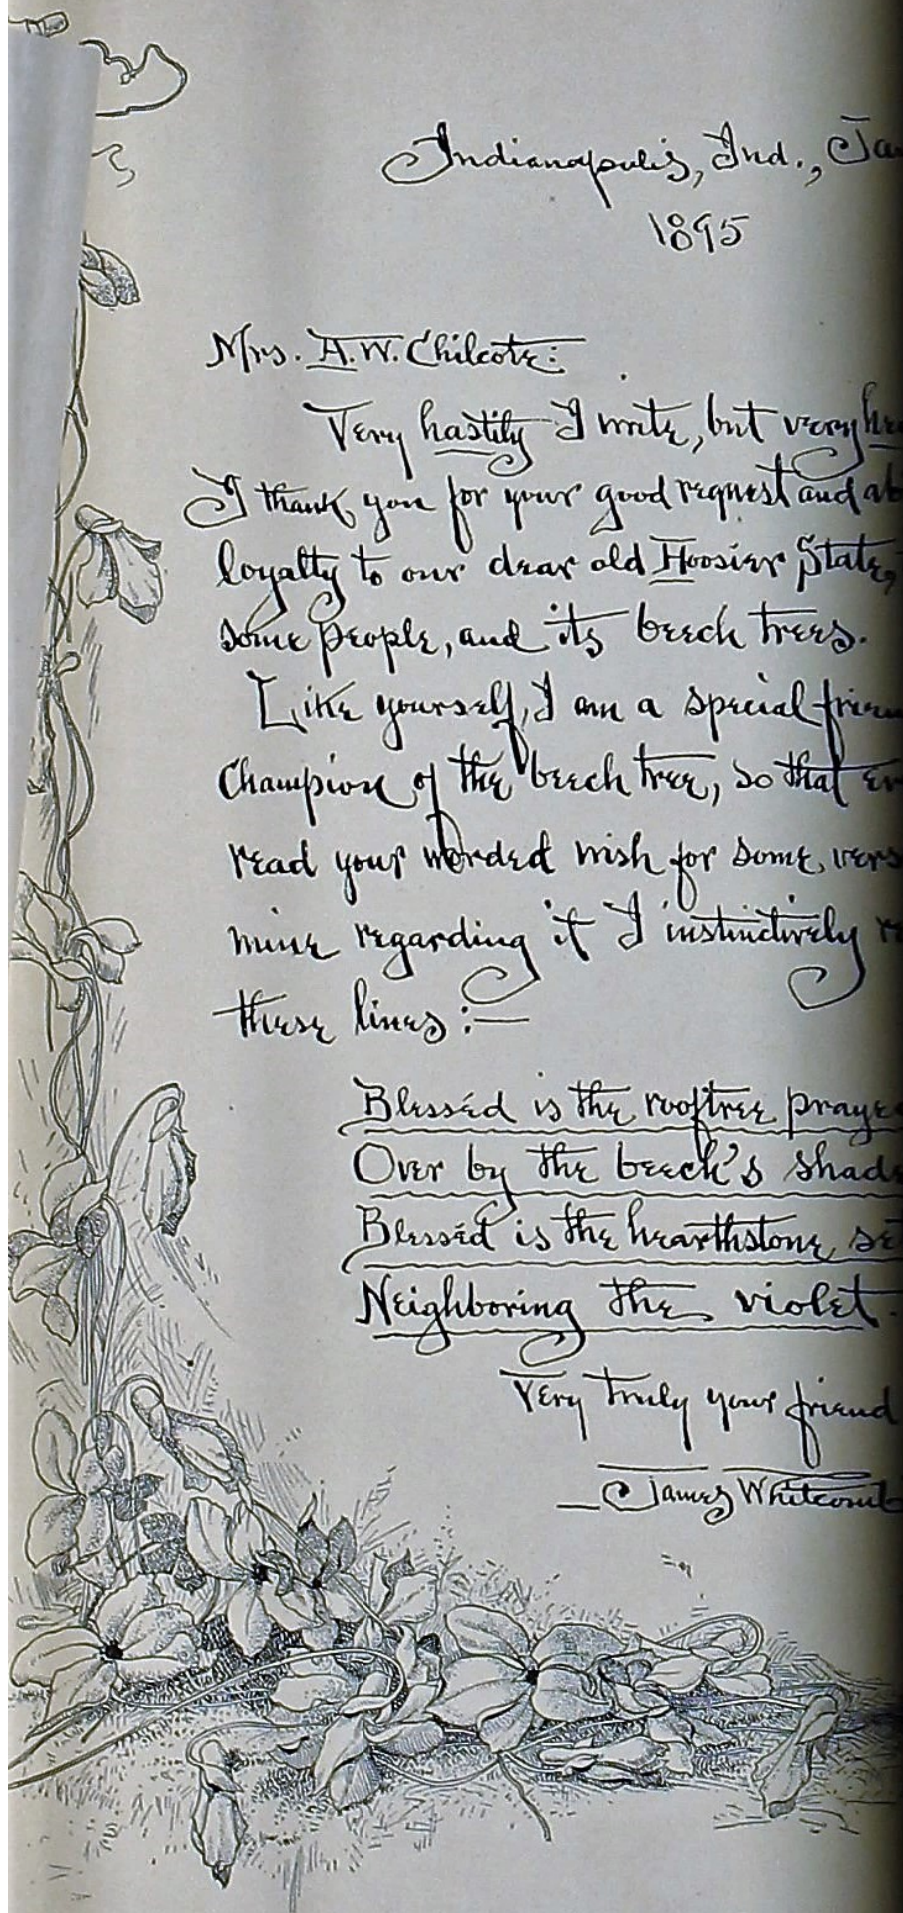 Indianapolis, Ind., Ja
1895
Mrs. A. W. Chilcote:
Very hastily I write, but very he
I thank you for your good request and ab
loyalty to our dear old Hoosier State,
some people, and its beech trees.
Like yourself, I am a special frien
Champion of the beech tree, so that e
read your worded wish for some vers
mine regarding it I instinctively r
these lines:—
Blesséd is the rooftree praye
Over by the beech's shad
Blesséd is the hearthstone se
Neighboring the violet.
Very truly your friend
—James Whitcomb